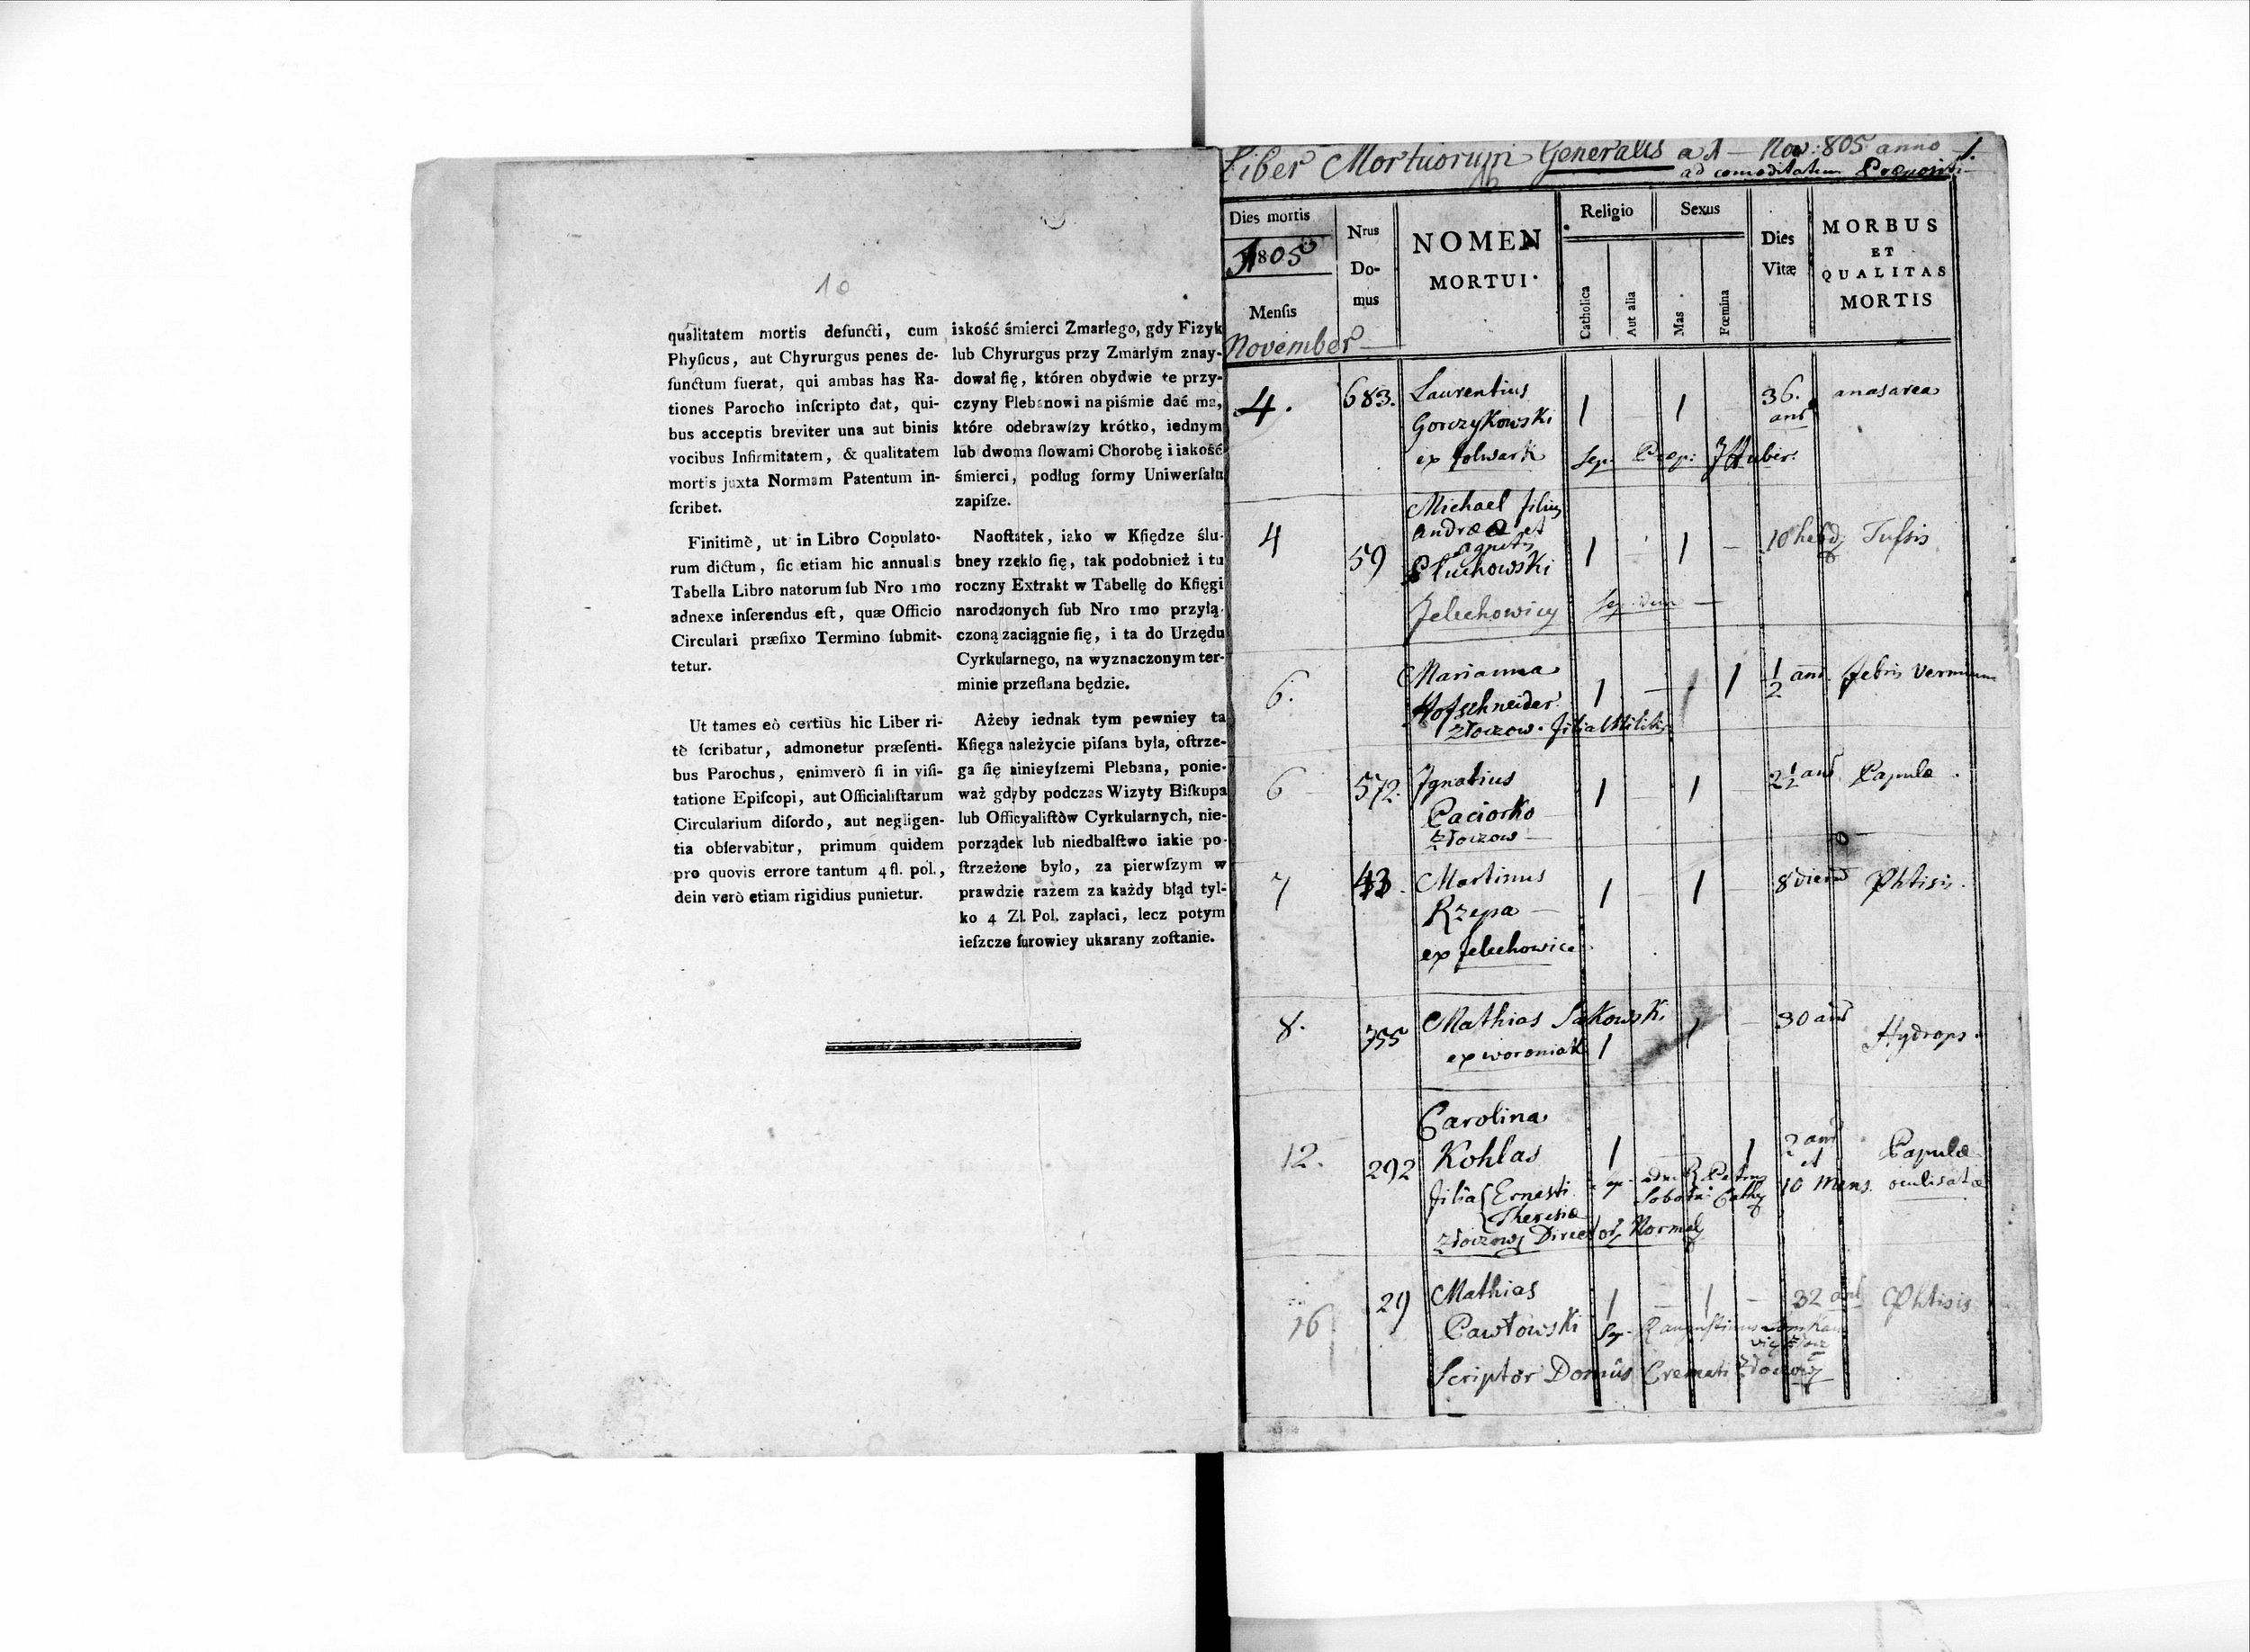 10
qualitatem mortis defuncti, cum
Phyſicus, aut Chyrurgus penes de-
functum fuerat, qui ambas has Ra-
tiones Parocho inſcripto dat, qui-
bus acceptis breviter una aut binis
vocibus Infirmitatem, & qualitatem
mortis juxta Normam Patentum in-
ſcribet.
Finitimè, ut in Libro Copulato-
rum dictum, ſic etiam hic annualis
Tabella Libro natorum ſub Nro 1mo
adnexe inſerendus eſt, quæ Officio
Circulari præfixo Termino ſubmit-
tetur.
Ut tames eò certiùs hic Liber ri-
tè ſcribatur, admonetur præſenti-
bus Parochus, enimverò ſi in viſi-
tatione Epiſcopi, aut Officialiſtarum
Circularium diſordo, aut negligen-
tia obſervabitur, primum quidem
pro quovis errore tantum 4 fl. pol.,
dein verò etiam rigidius punietur.
iakość śmierci Zmarłego, gdy Fizyk
lub Chyrurgus przy Zmarłym znay-
dował ſię, któren obydwie te przy-
czyny Plebanowi na piśmie dać ma,
które odebrawſzy krótko, iednym
lub dwoma ſłowami Chorobę i iakość
śmierci, podług formy Uniwerſału
zapiſze.
Naoſtatek, iako w Kſiędze ślu-
bney rzekło ſię, tak podobnież i tu
roczny Extrakt w Tabellę do Kſięgi
narodzonych ſub Nro 1mo przyłą-
czoną zaciągnie ſię, i ta do Urzędu
Cyrkularnego, na wyznaczonym ter-
minie przeſłana będzie.
Ażeby iednak tym pewniey ta
Kſięga należycie piſana była, oſtrze-
ga ſię ninieyſzemi Plebana, ponie-
waż gdyby podczas Wizyty Biſkupa
lub Officyaliſtów Cyrkularnych, nie-
porządek lub niedbalſtwo iakie po-
ſtrzeżone było, za pierwſzym w
prawdzie razem za każdy błąd tyl-
ko 4 Zł. Pol. zapłaci, lecz potym
ieſzcze ſurowiey ukarany zoſtanie.
Liber Mortuorum Generalis a 1 Nov: 805 anno 1.
ad comoditatem Præpositi
Dies mortis
1805
Menſis
November
Nrus
Do-
mus
NOMEN
MORTUI
Religio
Catholica
Aut alia
Sexus
Mas
Fœmina
Dies
Vitæ
MORBUS
ET
QUALITAS
MORTIS
4. 683. Laurentius 1 – 1 – 36. anasarca
Gorczykowski
ex folwark Sep. Præp: J Huber.
Michael filius
Andreæ et
Agnetis
4 59 Pluchowski 1 – 1 – 10 hebd Tussis
Jelechowicy
6. Marianna 1 – 1 1/2 an. febris vermium
Hofschneider
Złoczow. filia Militis
6 572. Ignatius 1 – 1 – 2 1/2 an Papulæ
Paciorko
Złoczow
7 43. Martinus 1 – 1 – 8 dierum Phtisis.
Rzepa
ex Jelechowice
8. 355 Mathias Sakowski 1 – 1 – 30 an Hydrops.
ex woroniak
Carolina
12. 292 Kohlas 1 – 1 2 an Papulæ
et
filia Ernesti 10 Mens. oculisatæ
Theresiæ
Director Normal
29 Mathias 1 – 1 – 32 Phtisis
16 Pawłowski Sep.
Scriptor Domûs Cremati